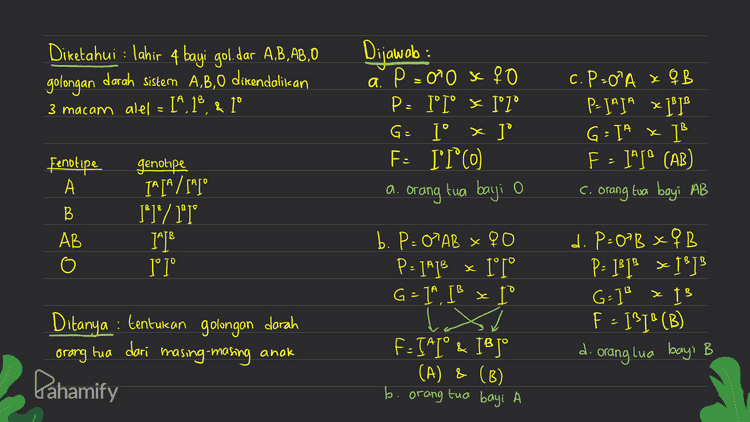 Diketahui : lahir 4 bayi gol.dar A,B,AB,O
golongan darah sistem A,B,O dikendalikan
3 macam alel = Iᴬ, Iᴮ, & I⁰
Fenotipe genotipe
A IᴬIᴬ/IᴬI⁰
B IᴮIᴮ/IᴮI⁰
AB IᴬIᴮ
O I⁰I⁰
Ditanya : tentukan golongan darah
orang tua dari masing-masing anak
Pahamify
Dijawab :
a. P = ♂O x ♀O
P = I⁰I⁰ x I⁰I⁰
G = I⁰ x I⁰
F = I⁰I⁰ (O)
a. orang tua bayi O
b. P = ♂AB x ♀O
P = IᴬIᴮ x I⁰I⁰
G = Iᴬ, Iᴮ x I⁰
F = IᴬI⁰ & IᴮI⁰
(A) & (B)
b. orang tua bayi A
c. P = ♂A x ♀B
P = IᴬIᴬ x IᴮIᴮ
G = Iᴬ x Iᴮ
F = IᴬIᴮ (AB)
c. orang tua bayi AB
d. P = ♂B x ♀B
P = IᴮIᴮ x IᴮIᴮ
G = Iᴮ x Iᴮ
F = IᴮIᴮ (B)
d. orang tua bayi B